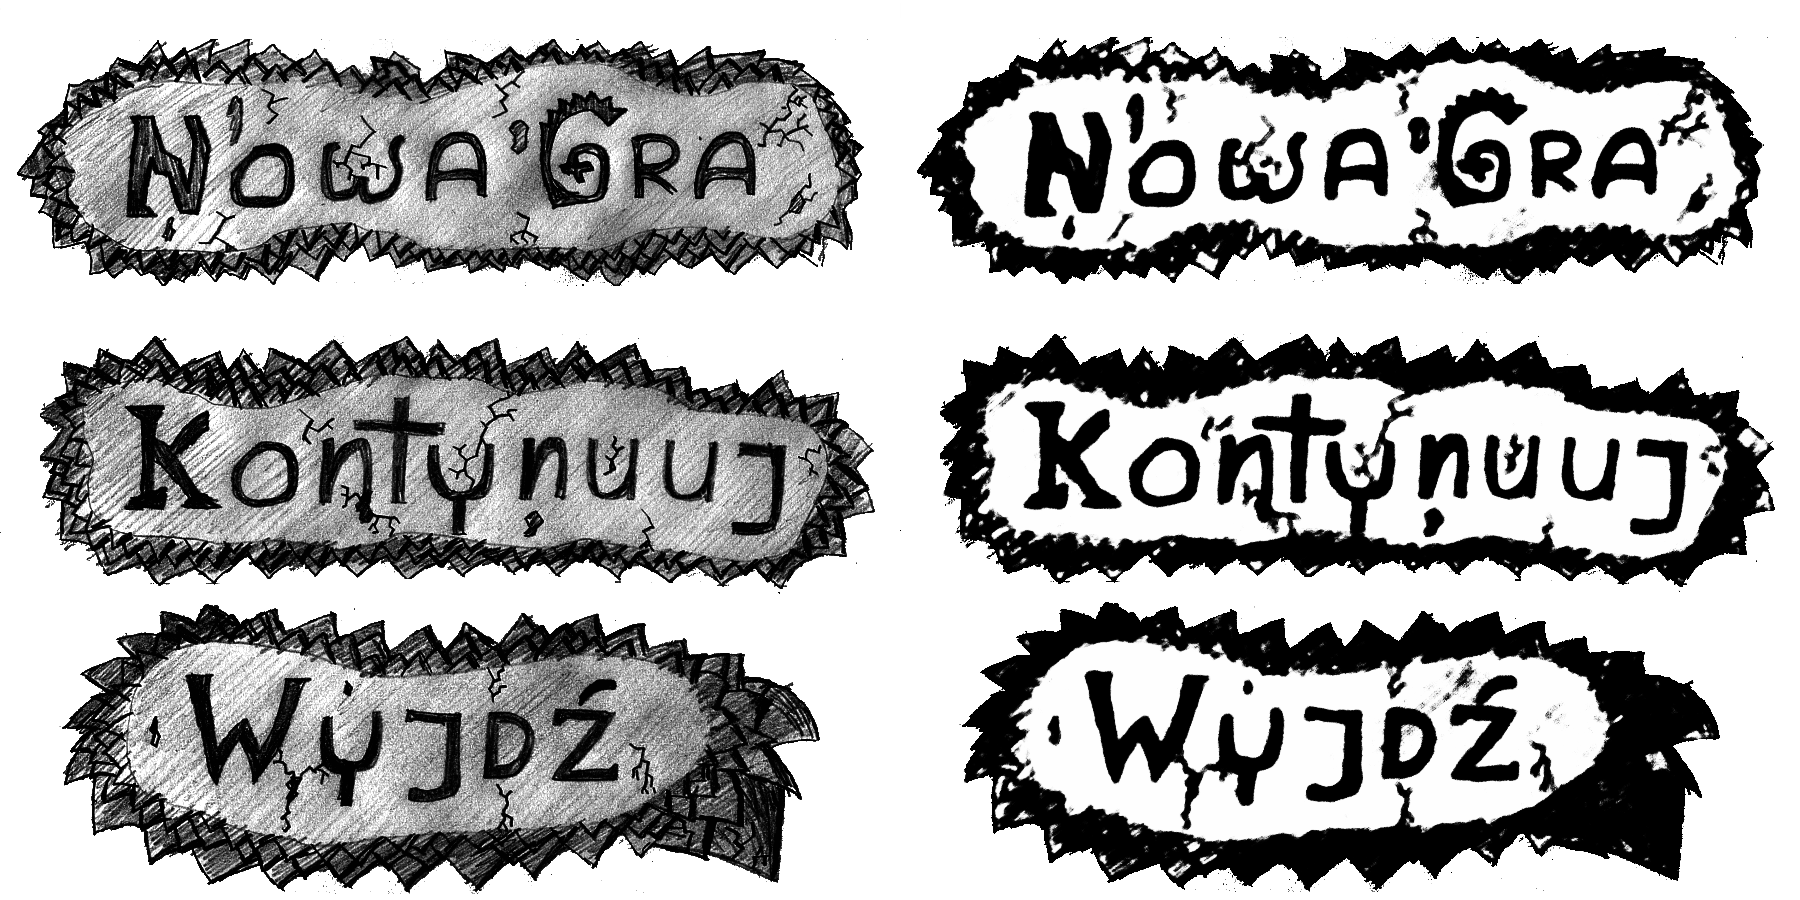 Nowa Gra Nowa Gra
Kontynuuj Kontynuuj
Wyjdź Wyjdź